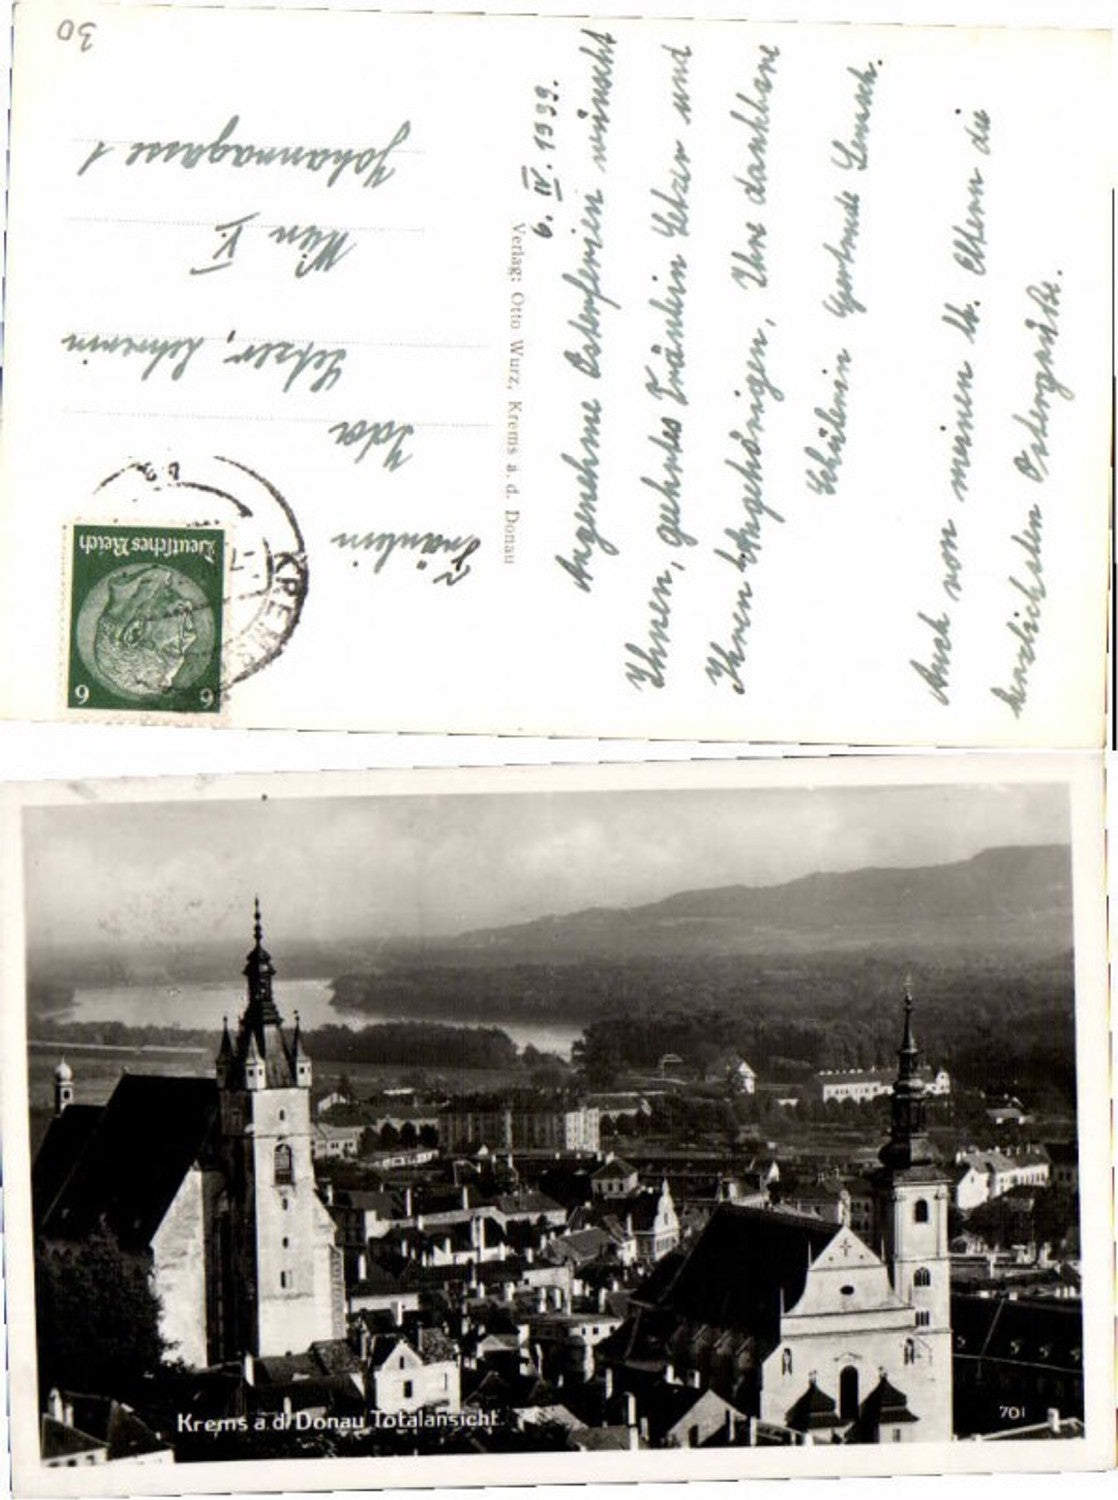 30
Fräulein
Ida
Setzer, Lehrerin
Wien V.
Johannagasse 1
Deutsches Reich
6 6
KREMS
Verlag: Otto Wurz, Krems a. d. Donau
6. IV. 1939.
Angenehme Osterferien wünscht
Ihnen, geehrtes Fräulein Setzer und
Ihren Angehörigen, Ihre dankbare
Schülerin Gertrude
Auch von meinen lb. Eltern die
herzlichsten Ostergrüße.
Krems a.d. Donau Totalansicht.
701